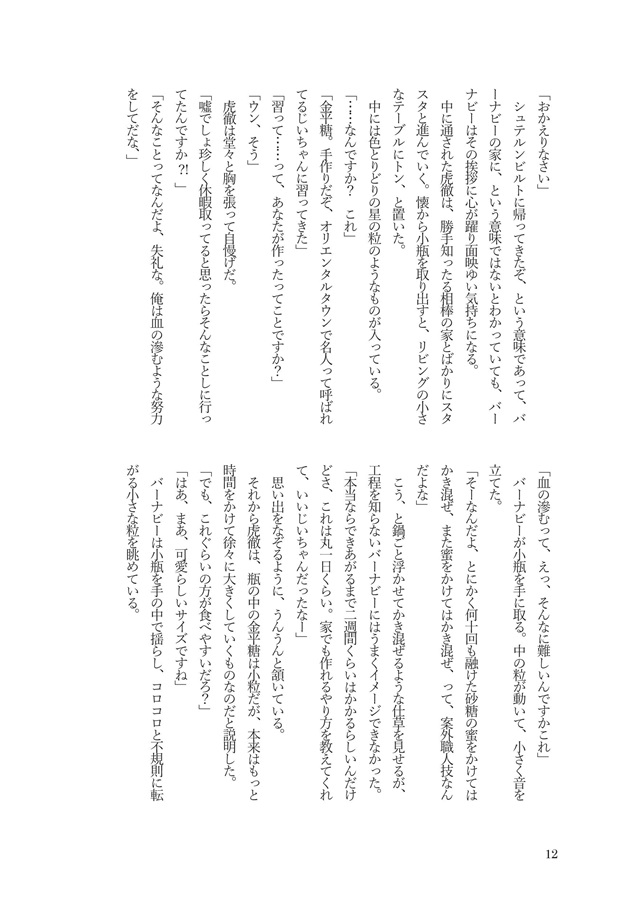 「おかえりなさい」
　シュテルンビルトに帰ってきたぞ、という意味であって、バ
ーナビーの家に、という意味ではないとわかっていても、バー
ナビーはその挨拶に心が躍り面映ゆい気持ちになる。
　中に通された虎徹は、勝手知ったる相棒の家とばかりにスタ
スタと進んでいく。懐から小瓶を取り出すと、リビングの小さ
なテーブルにトン、と置いた。
　中には色とりどりの星の粒のようなものが入っている。
「……なんですか？　これ」
「金平糖。手作りだぞ、オリエンタルタウンで名人って呼ばれ
てるじいちゃんに習ってきた」
「習って……って、あなたが作ったってことですか？」
「ウン、そう」
　虎徹は堂々と胸を張って自慢げだ。
「嘘でしょ珍しく休暇取ってると思ったらそんなことしに行っ
てたんですか⁈　」
「そんなことってなんだよ、失礼な。俺は血の滲むような努力
をしてだな、」
「血の滲むって、えっ、そんなに難しいんですかこれ」
　バーナビーが小瓶を手に取る。中の粒が動いて、小さく音を
立てた。
「そーなんだよ、とにかく何十回も融けた砂糖の蜜をかけては
かき混ぜ、また蜜をかけてはかき混ぜ、って、案外職人技なん
だよな」
　こう、と鍋ごと浮かせてかき混ぜるような仕草を見せるが、
工程を知らないバーナビーにはうまくイメージできなかった。
「本当ならできあがるまで二週間くらいはかかるらしいんだけ
どさ、これは丸一日くらい。家でも作れるやり方を教えてくれ
て、いいじいちゃんだったなー」
　思い出をなぞるように、うんうんと頷いている。
　それから虎徹は、瓶の中の金平糖は小粒だが、本来はもっと
時間をかけて徐々に大きくしていくものなのだと説明した。
「でも、これぐらいの方が食べやすいだろ？」
「はあ、まあ、可愛らしいサイズですね」
　バーナビーは小瓶を手の中で揺らし、コロコロと不規則に転
がる小さな粒を眺めている。
12